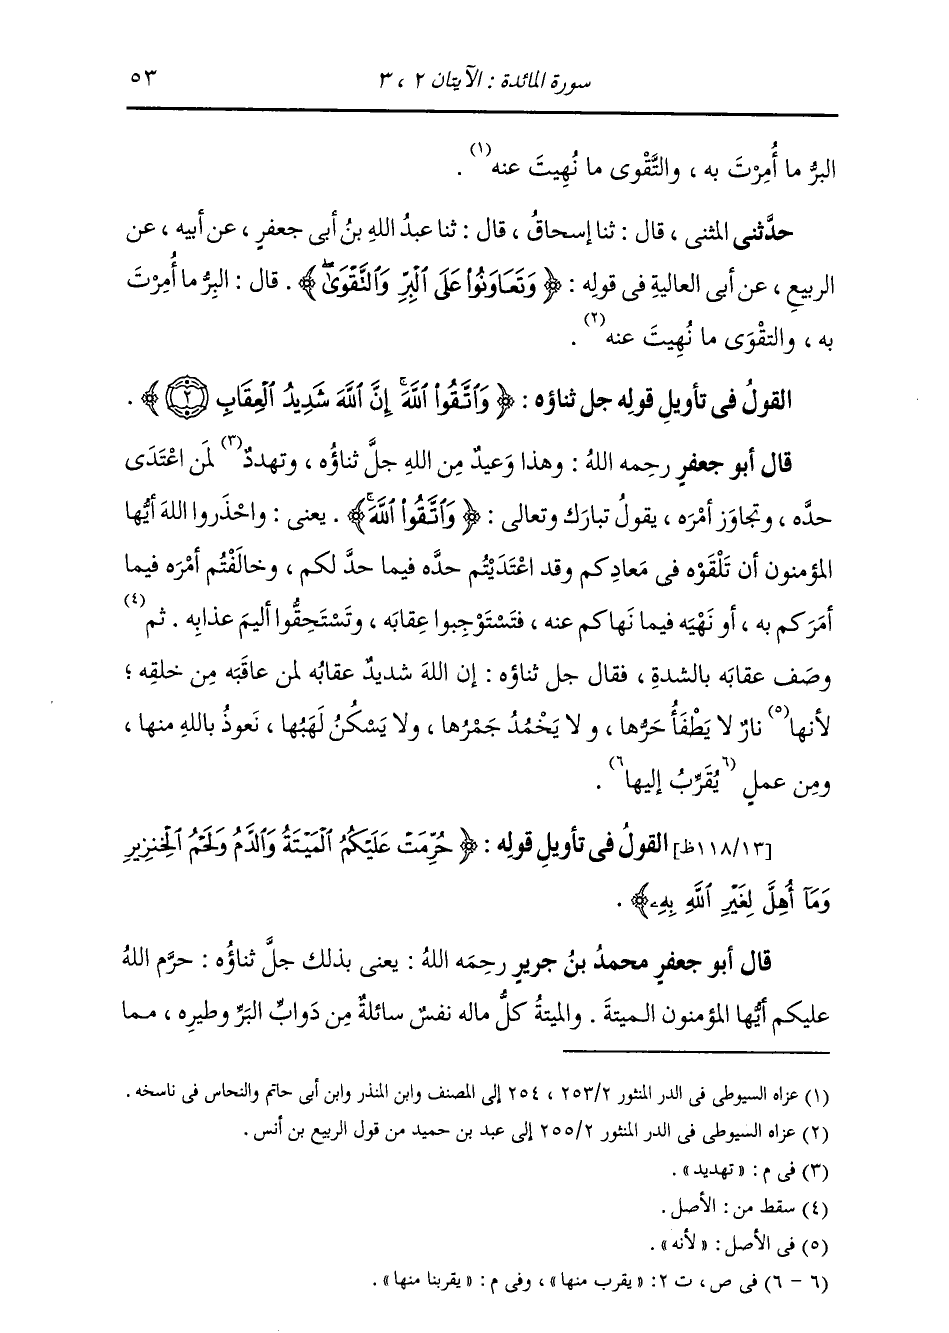 سورة المائدة : الآيتان ٢ ، ٣ ٥٣
البرُّ ما أُمِرْتَ به ، والتَّقْوى ما نُهِيتَ عنه(١) .
حدَّثنى المثنى ، قال : ثنا إسحاقُ ، قال : ثنا عبدُ اللهِ بنُ أبى جعفرٍ ، عن أبيه ، عن
الربيعِ ، عن أبى العاليةِ فى قولِه : ﴿ وَتَعَاوَنُوا۟ عَلَى ٱلْبِرِّ وَٱلتَّقْوَىٰۖ ﴾ . قال : البِرُّ ما أُمِرْتَ
به ، والتقْوَى ما نُهِيتَ عنه(٢) .
القولُ فى تأويلِ قولِه جل ثناؤه : ﴿ وَٱتَّقُوا۟ ٱللَّهَۖ إِنَّ ٱللَّهَ شَدِيدُ ٱلْعِقَابِ (٢) ﴾ .
قال أبو جعفرٍ رحِمه اللهُ : وهذا وَعيدٌ مِن اللهِ جلَّ ثناؤُه ، وتهددٌ(٣) لمَن اعْتَدَى
حدَّه ، وتجاوَز أمْرَه ، يقولُ تبارَك وتعالى : ﴿ وَٱتَّقُوا۟ ٱللَّهَۖ ﴾ . يعنى : واحْذَروا اللهَ أيُّها
المؤمنون أن تَلْقَوْه فى مَعادِكم وقد اعْتَدَيْتُم حدَّه فيما حدَّ لكم ، وخالَفْتُم أمْرَه فيما
أمَرَكم به ، أو نَهْيَه فيما نَهاكم عنه ، فتَسْتَوْجِبوا عِقابَه ، وتَسْتَحِقُّوا أليمَ عذابِه . ثم(٤)
وصَف عقابَه بالشدةِ ، فقال جل ثناؤه : إن اللهَ شديدٌ عقابُه لمن عاقَبَه مِن خلقِه ؛
لأنها(٥) نارٌ لا يَطْفَأُ حَرُّها ، و لا يَخْمُدُ جَمْرُها ، ولا يَسْكُنُ لَهَبُها ، نَعوذُ باللهِ منها ،
ومِن عملٍ (٦يُقَرِّبُ إليها٦) .
[١١٨/١٣ظ] القولُ فى تأويلِ قولِه : ﴿ حُرِّمَتْ عَلَيْكُمُ ٱلْمَيْتَةُ وَٱلدَّمُ وَلَحْمُ ٱلْخِنزِيرِ
وَمَآ أُهِلَّ لِغَيْرِ ٱللَّهِ بِهِۦ ﴾ .
قال أبو جعفرٍ محمدُ بنُ جريرٍ رحِمَه اللهُ : يعنى بذلك جلَّ ثناؤُه : حرَّم اللهُ
عليكم أيُّها المؤمنون الميتةَ . والميتةُ كلُّ ماله نفسٌ سائلةٌ مِن دَوابِّ البَرِّ وطيرِه ، مما
(١) عزاه السيوطى فى الدر المنثور ٢/ ٢٥٣ ، ٢٥٤ إلى المصنف وابن المنذر وابن أبى حاتم والنحاس فى ناسخه .
(٢) عزاه السيوطى فى الدر المنثور ٢/ ٢٥٥ إلى عبد بن حميد من قول الربيع بن أنس .
(٣) فى م : « تهديد » .
(٤) سقط من : الأصل .
(٥) فى الأصل : « لأنه » .
(٦ - ٦) فى ص ، ت ٢: « يقرب منها » ، وفى م : « يقربنا منها » .